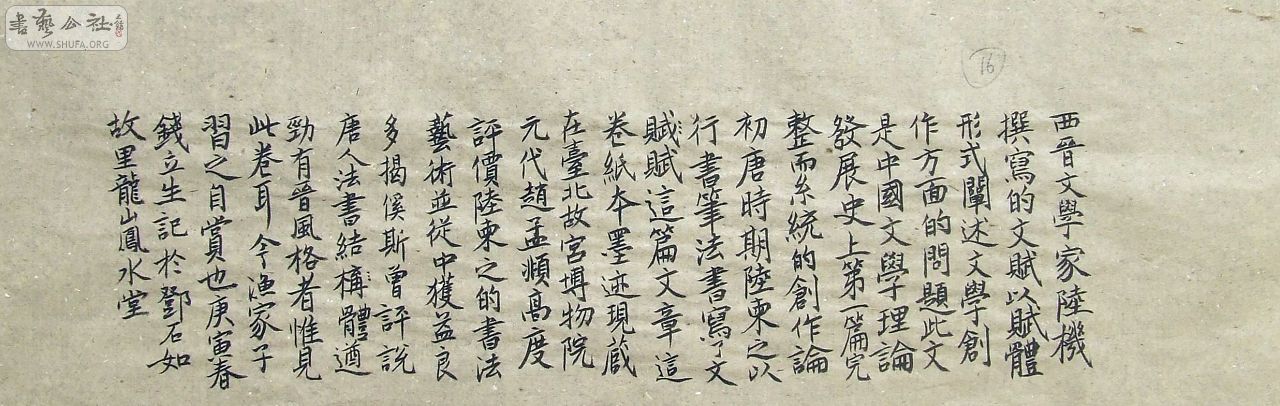 書藝公社
WWW.SHUFA.ORG
16
西晉文學家陸機
撰寫的文賦以賦體
形式闡述文學創
作方面的問題此文
是中國文學理論
發展史上第一篇完
整而系統的創作論
初唐時期陸柬之以
行書筆法書寫了文
賦賦這篇文章這
卷紙本墨迹現蔵
在臺北故宮博物院
元代趙孟頫高度
評價陸柬之的書法
藝術並從中獲益良
多揭傒斯曾評說
唐人法書結構體遒
勁有晉風格者惟見
此卷耳今渔家子
習之自賞也庚寅春
錢立生記於鄧石如
故里龍山鳳水堂